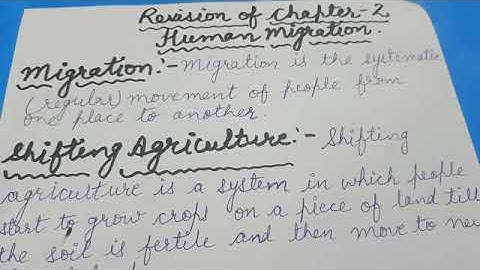 Revision of Chapter-2
Human Migration.
Migration:- Migration is the systematic
(regular) movement of people from
one place to another.
Shifting Agriculture:- Shifting
agriculture is a system in which people
start to grow crops on a piece of land till
the soil is fertile and then move to new